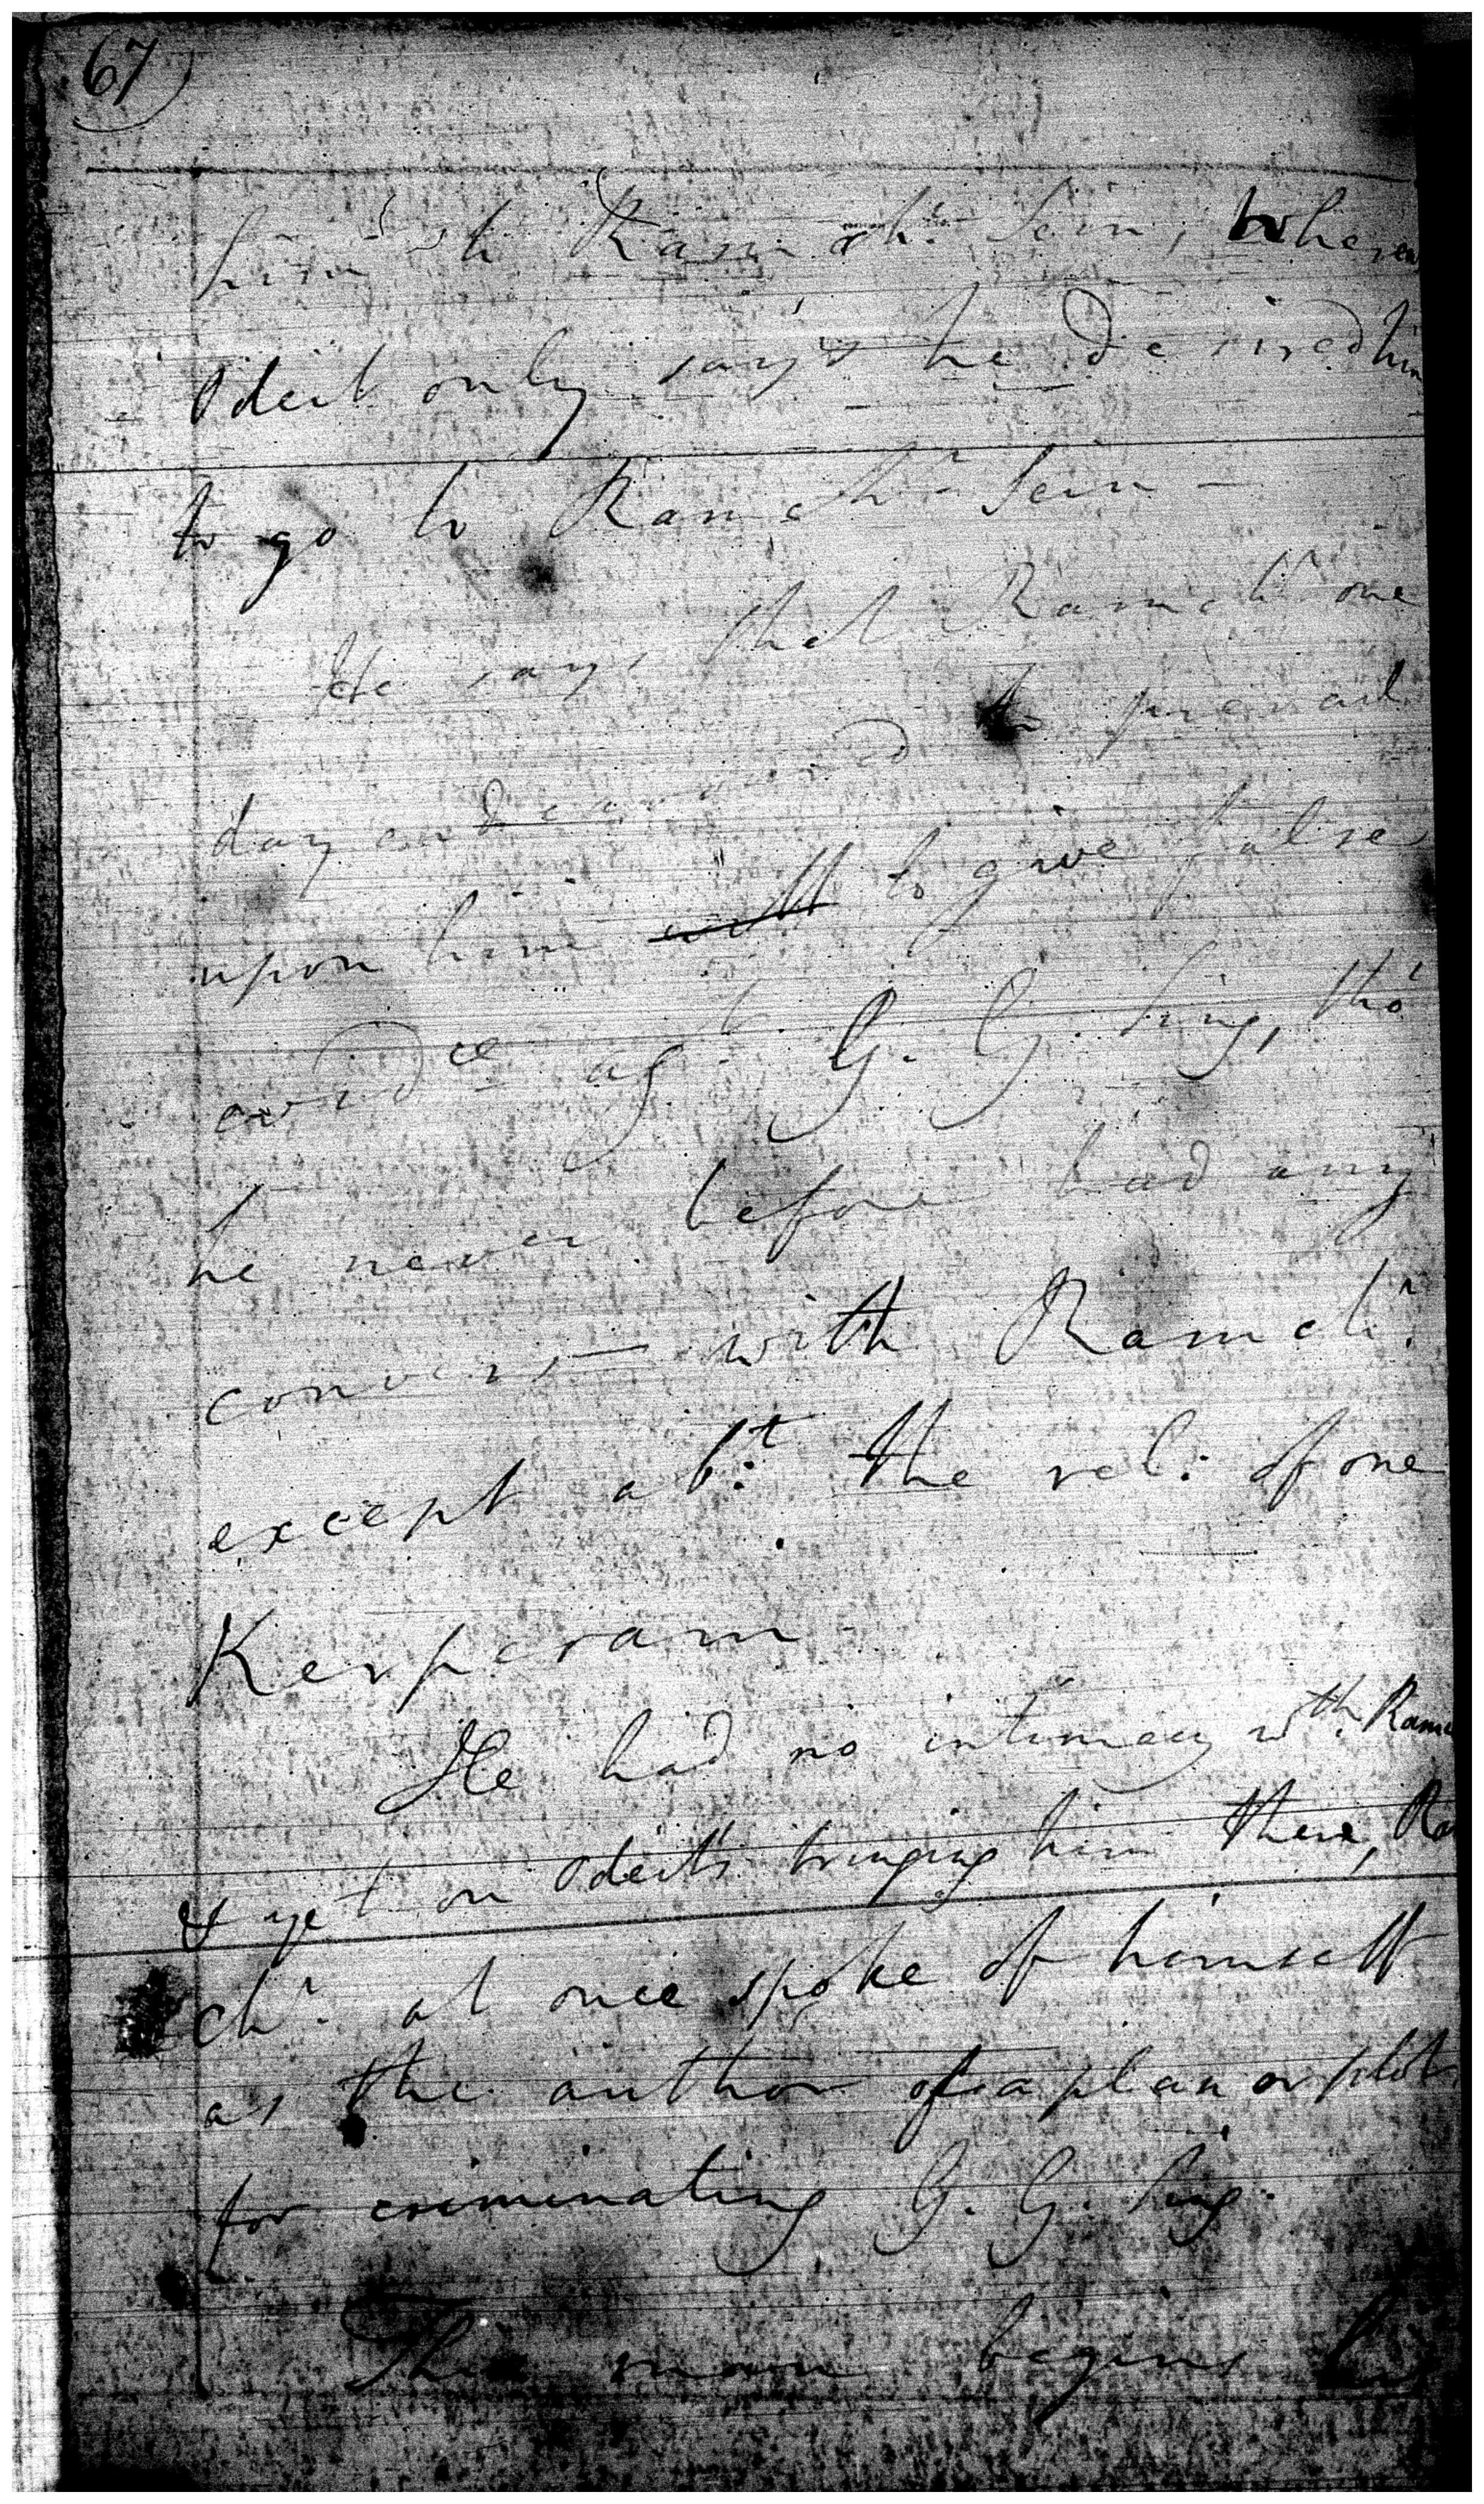 67
him Ramch.r Sein, wherea
Odeit only says he desired him
to go to Ramch.r Sein -
He says that Ramch.r one
day endeavoured to prevail
upon him to give false
evid.ce ag. G. G. Sing, tho'
he never before had any
convers.n with Ramch.r
except ab.t the rel: of one
Kerperam
He had no intimacy w.th Ramc
& yet on Odeit's bringing him there, Ra
ch.r at once spoke of himself
as the author of a plan or plot
for criminating G. G. Sing.
This man begins